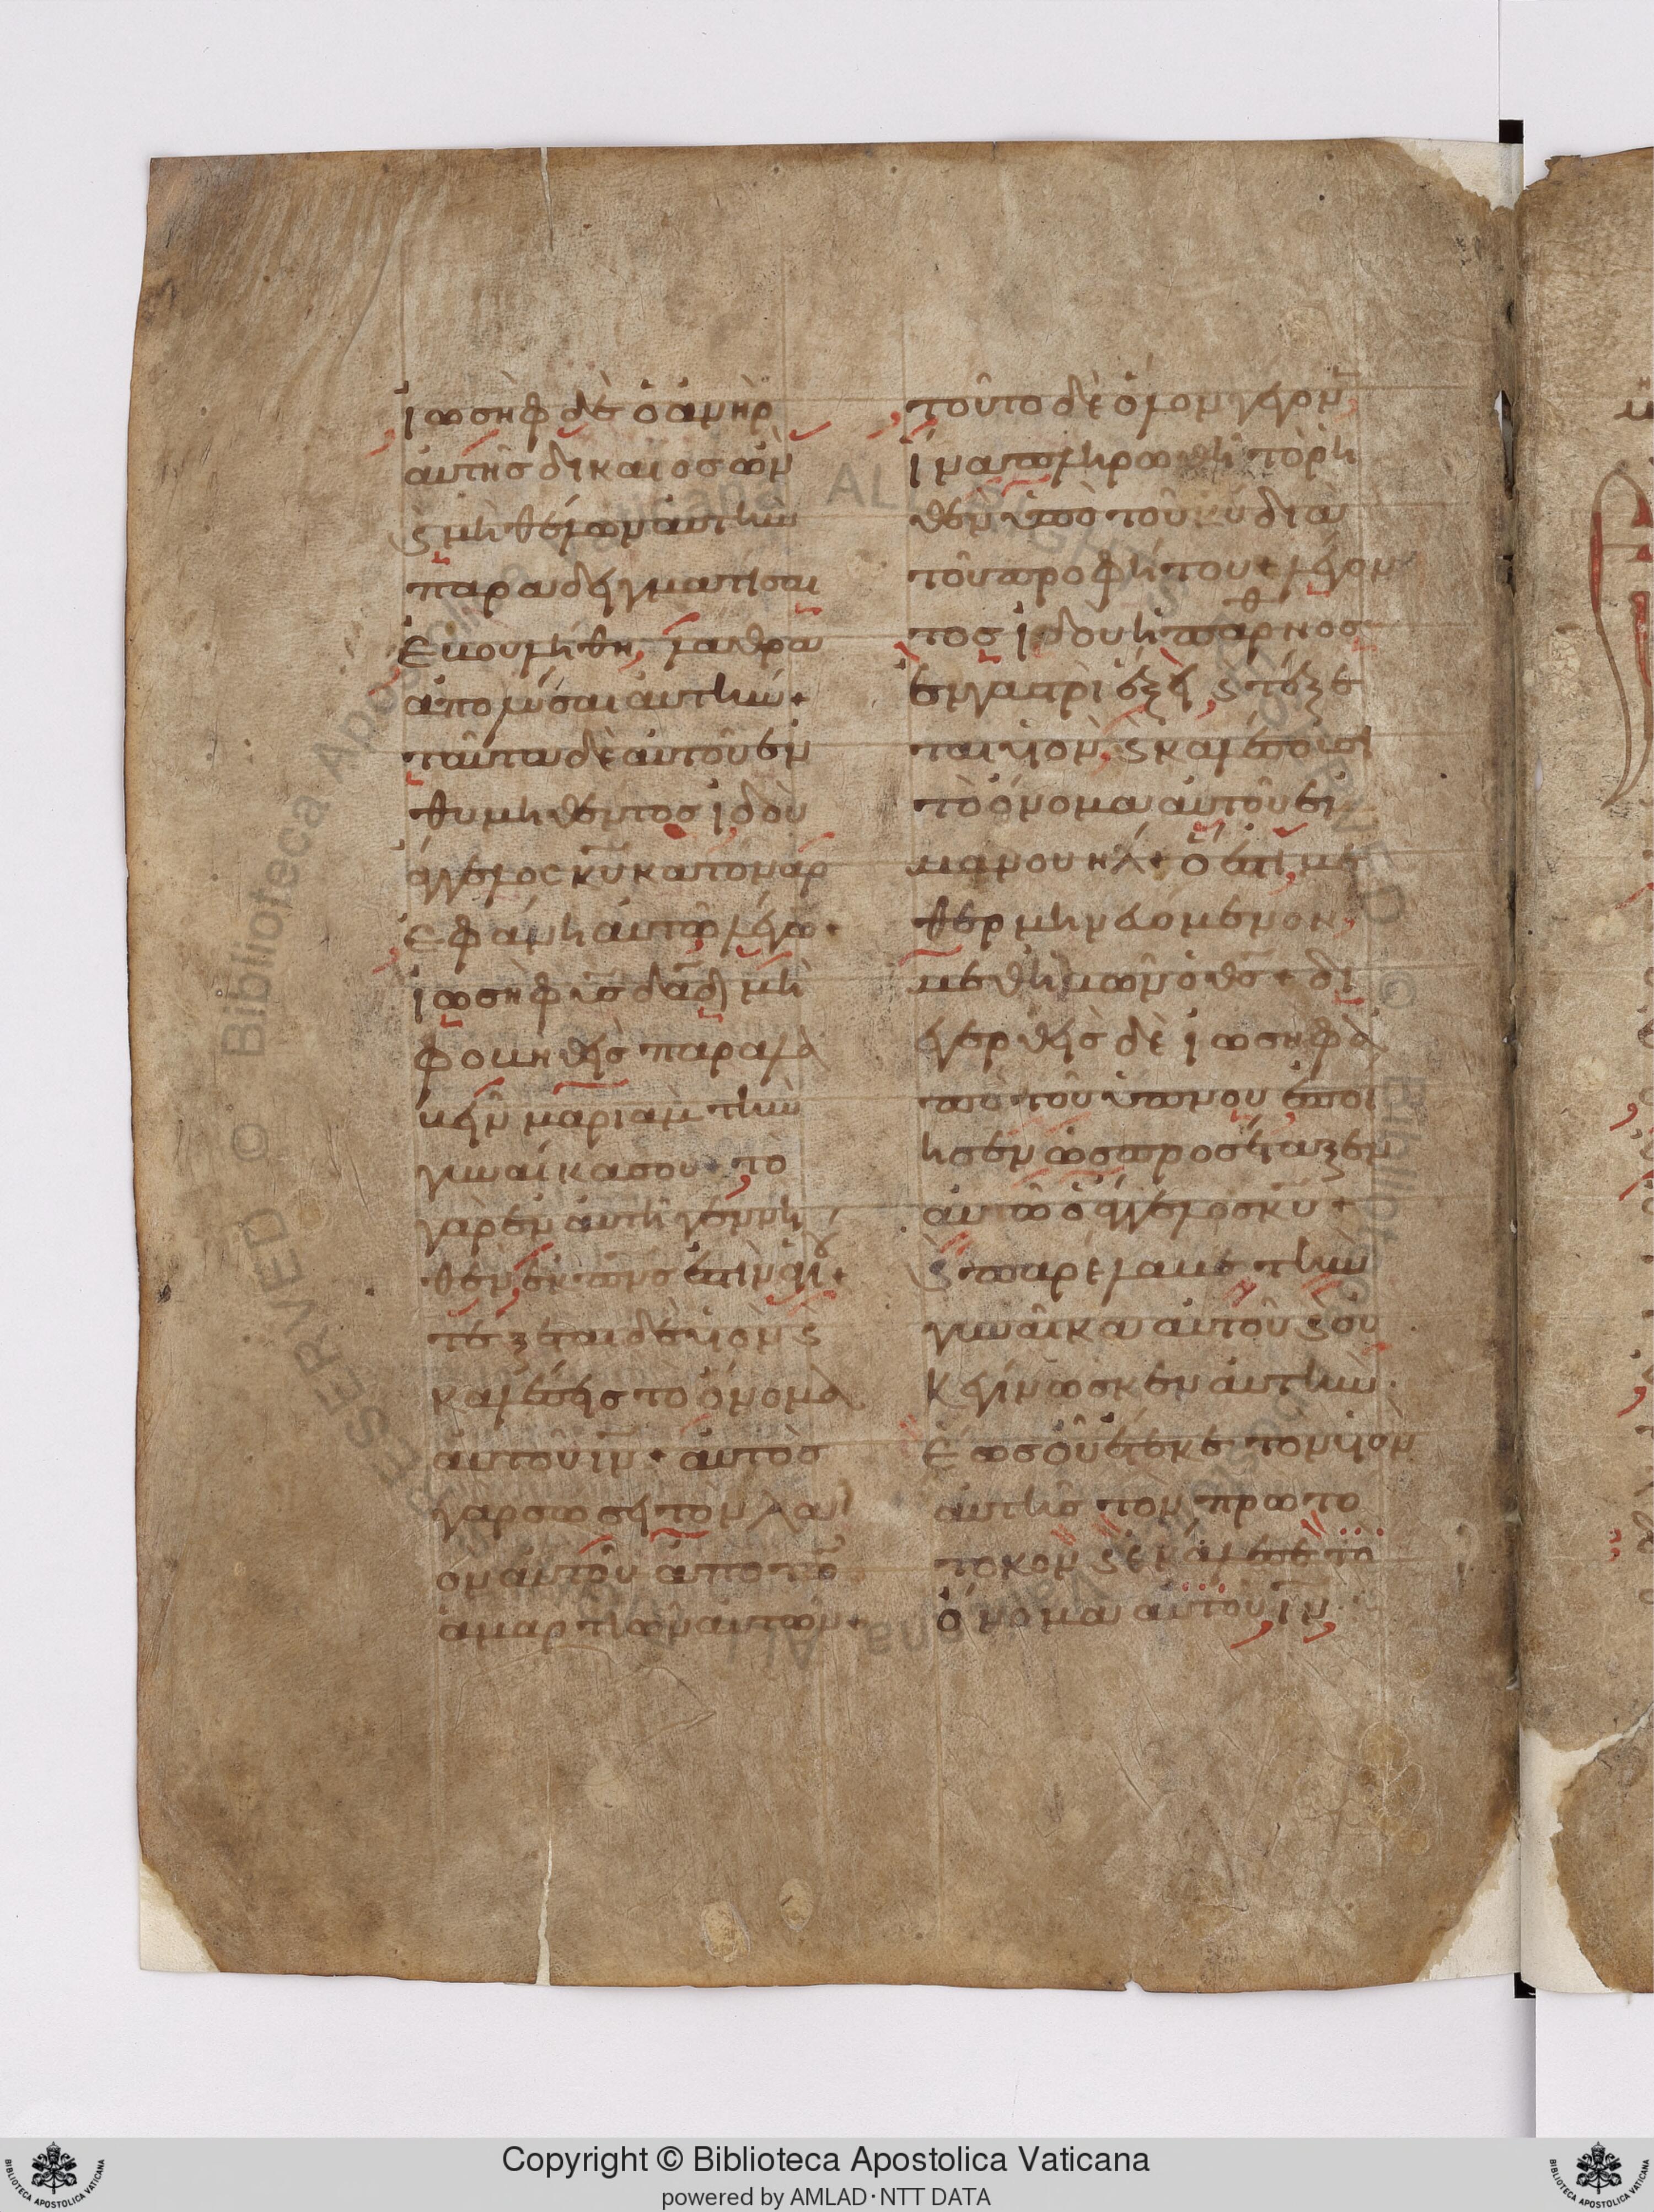 ἰωσὴφ δὲ ὁ ἀνὴρ
ἀυτῆς δίκαιος ὢν
ϗ μὴ θέλων ἀυτὴν
παραδειγματίσαι
ἐβουλήθη λάθρα
ἀπολύσαι ἀυτήν+
ταῦτα δὲ ἀυτοῦ ἐν
θυμηθέντος ἰδοὺ
ἄγγελος κ̅υ̅ κατ' ὄναρ
ἐφάνη ἀυτῶ λέγω̅+
ἰωσὴφ υ̅ς̅ δα̅δ̅ μὴ
φοβηθεὶς παραλα
βεῖν μαριὰμ τὴν
γυναίκα σου+ τὸ
γὰρ ἐν ἀυτῆ γεννη
θὲν ἐκ πν̅ς̅ ἐστὶν ἁγίου+
τέξεται δὲ υἱὸν ϗ
καλέσεις τὸ ὄνομα
ἀυτοῦ ι̅ν̅+ ἀυτὸς
γαρ σώσει τὸν λα
ον ἀυτοῦ ἀπο τῶ̅
ἁμαρτιῶν αυτῶν+
τοῦτο δὲ ὅλον γέγον̅
ἵνα πληρωθῆ τὸ ρη
θὲν ὑπὸ τοῦ κ̅υ̅ διὰ
τοῦ προφήτου+ λέγον
τος ἰδοὺ ἡ παρθένος
ἐν γαστρὶ ἕξει ϗ τέξε
ται υἱὸν, ϗ καλέσουσι
τὸ ὄνομα ἀυτοῦ ἐμ
μανουήλ+ ὅ ἐστι με
θερμηνευόμενον,
μεθ' ἡμῶν ὁ θ̅ς̅+ δι
εγερθεὶς δὲ ἰωσὴφ ἀ
πὸ τοῦ ὕπνου ἐποί
ησεν ὡς προσέταξεν
ἀυτῶ ὁ ἄγγελος κ̅υ̅+
ϗ παρέλαβε τὴν
γυναῖκα ἀυτοῦ ϗ οὐ
κ εγίνωσκεν ἀυτὴν
ἕως οὗ ἔτεκε τον υἱὸν
ἀυτῆς τὸν πρωτο
τοκον ϗ ἐκάλεσε τὸ
ὄνομα ἀυτοῦ ι̅ν̅
Copyright © Biblioteca Apostolica Vaticana
powered by AMLAD·NTT DATA